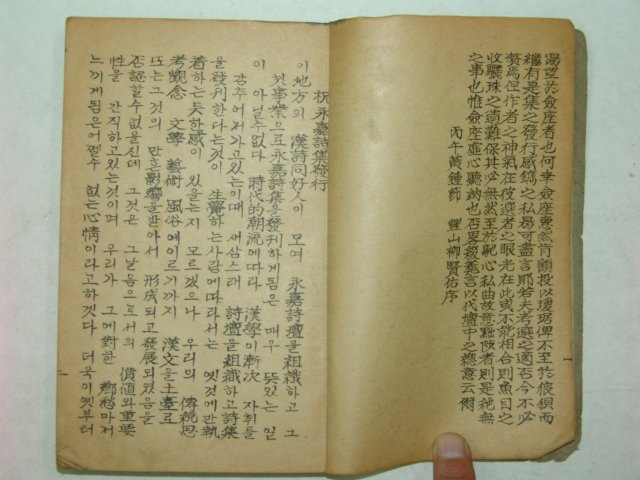 渴望於僉座者也何幸僉座憲然肯顧投以瓊琚俾不至於疲損而
繼有是集之發行感鐫之私曷可盡言耶若夫考選之適否今不必
贅焉但作者之神氣在彼選者之眼光在此或不能相合則魚目之
收驪珠之遺難保其必無然至於馳心私曲故意點攷者則是絶無
之事也惟僉座虛心聽納也否畧綴蕪言以代壇中之總意云爾
丙午黃鍾節 豊山柳賢佑序
祝永嘉詩集發行
이地方의 漢詩同好人이 모여 永嘉詩壇을組織하고 그
첫事業으로永嘉詩集을發刊하게됨은 매우 뜻있는 일
이 아닐수없다 時代的潮流에따라 漢學이漸次 자취를
감추어저가고있는이때 새삼스래 詩壇을組織하고詩集
을發刊한다는것이 生覺하는사람에따라서는 옛것에만執
着하는듯한感이 있을는지 모르겠으나 우리의 傳統思
考觀念 文學 藝術 風俗에이르기까지 漢文을土臺로
또는그것의 만흔影響을받아서 形成되고發展되였음을
否認할수없을진데 그것은 그날음으로서의 價値와重要
性을 간직하고있는것이며 우리가 그에對한 鄕愁마저
느끼게됨은어쩔수 없는心情이라고하겠다 더욱이옛부터